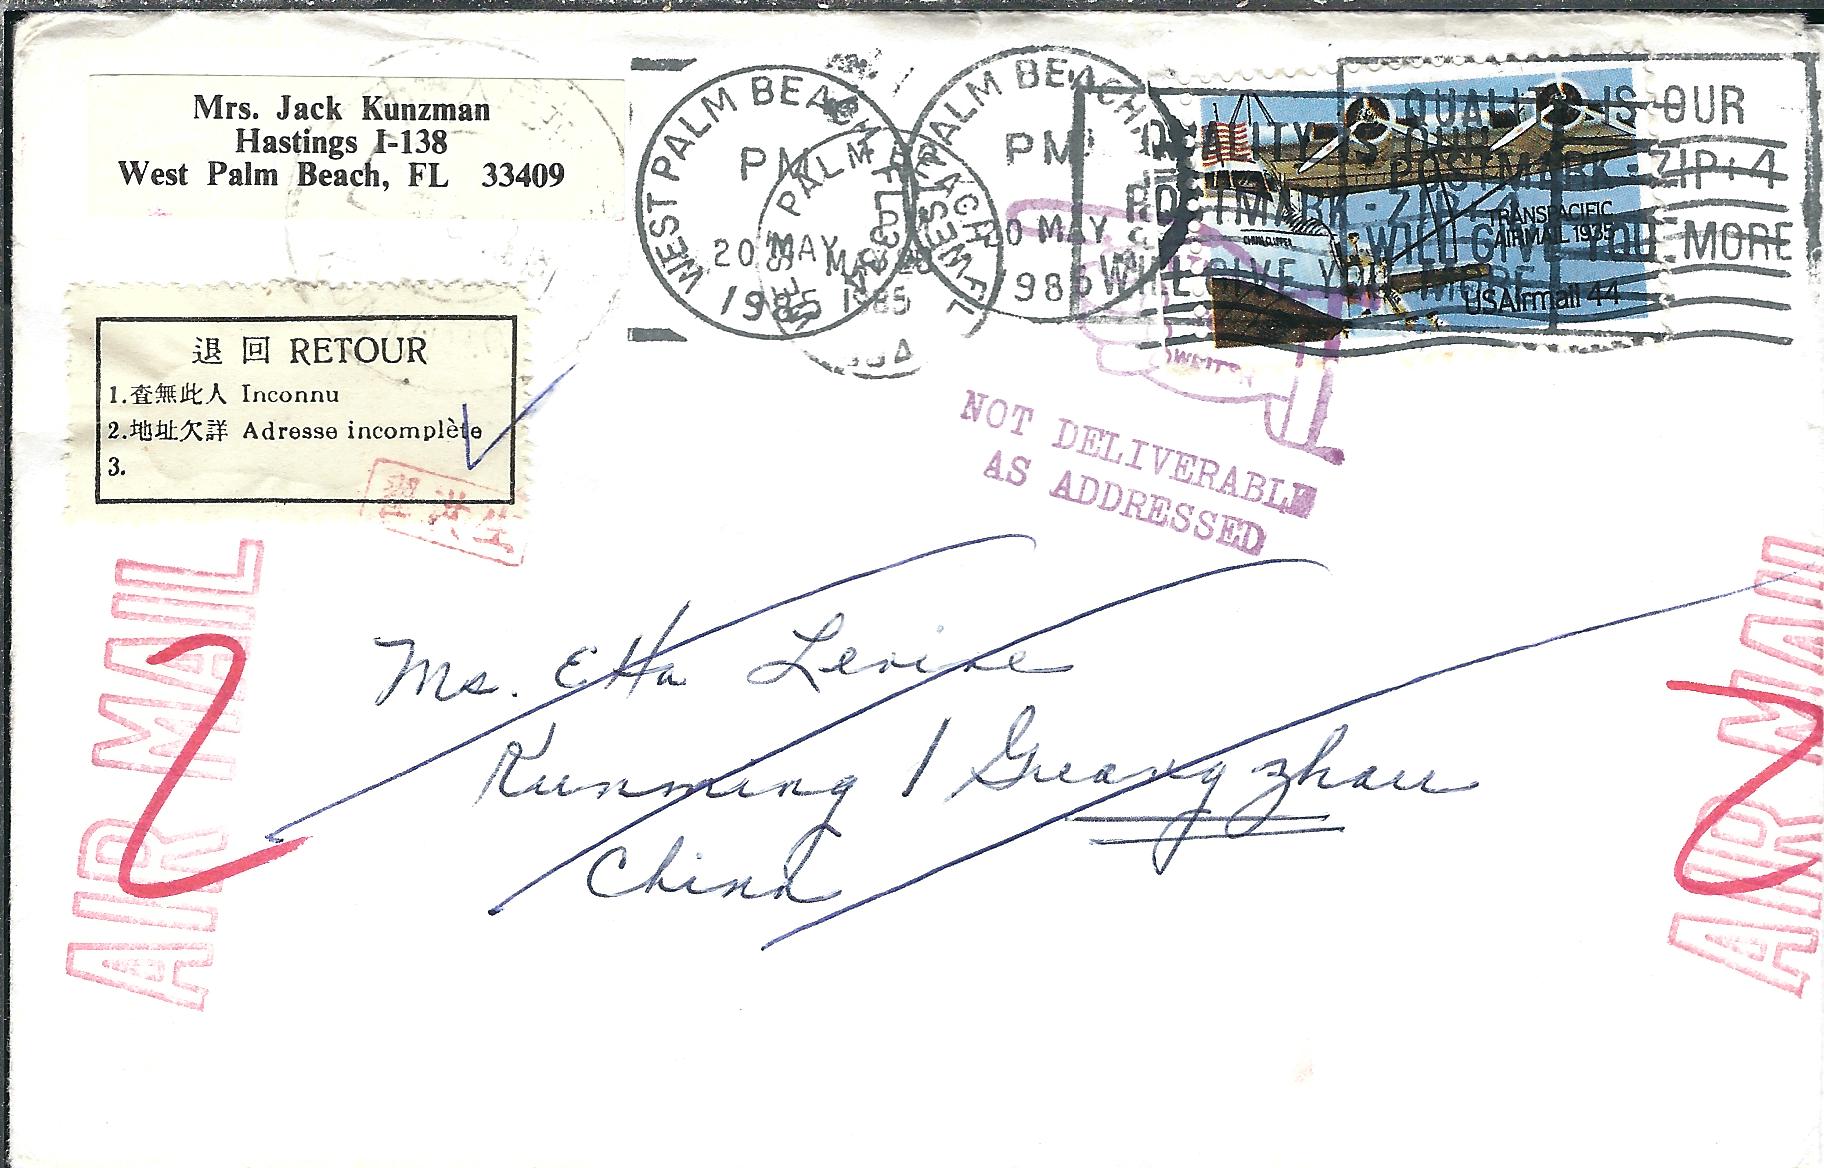 Mrs. Jack Kunzman
Hastings I-138
West Palm Beach, FL 33409
WEST PALM BEACH, FL
PM
20 MAY
1985
PALM BEACH
PM
MAY
QUALITY IS OUR
POSTMARK - ZIP+4
WILL GIVE YOU MORE
QUALITY IS OUR
POSTMARK - ZIP+4
WILL GIVE YOU MORE
1985
USA
CHINA CLIPPER
TRANSPACIFIC
AIRMAIL 1935
USAirmail 44
退回 RETOUR
1.查無此人 Inconnu
2.地址欠詳 Adresse incomplète
3.
WRITER
NOT DELIVERABLE
AS ADDRESSED
AIR MAIL
AIR MAIL
Ms. Etta Levine
Kunming / Guangzhou
China